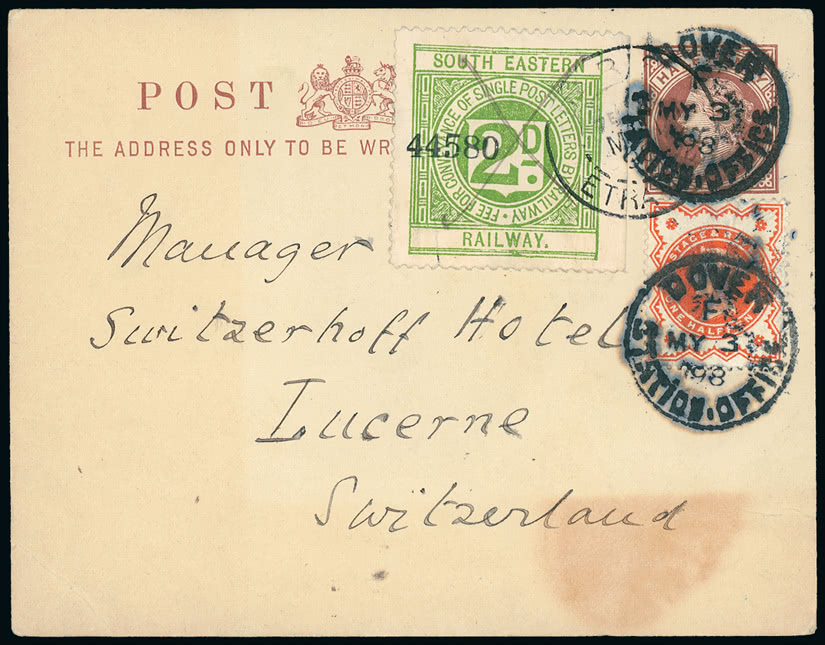 POST
THE ADDRESS ONLY TO BE WR
SOUTH EASTERN
FEE FOR CONV
GE OF SINGLE POST LETTERS BY RAILWAY
2D
44580
RAILWAY.
HA
DOVER
MY 3
98
STATION·OFFICE
STAGE & R
ONE HALF
DOVER
F
MY 3
98
STATION·OFFICE
Manager
Switzerhoff Hotel
Lucerne
Switzerland